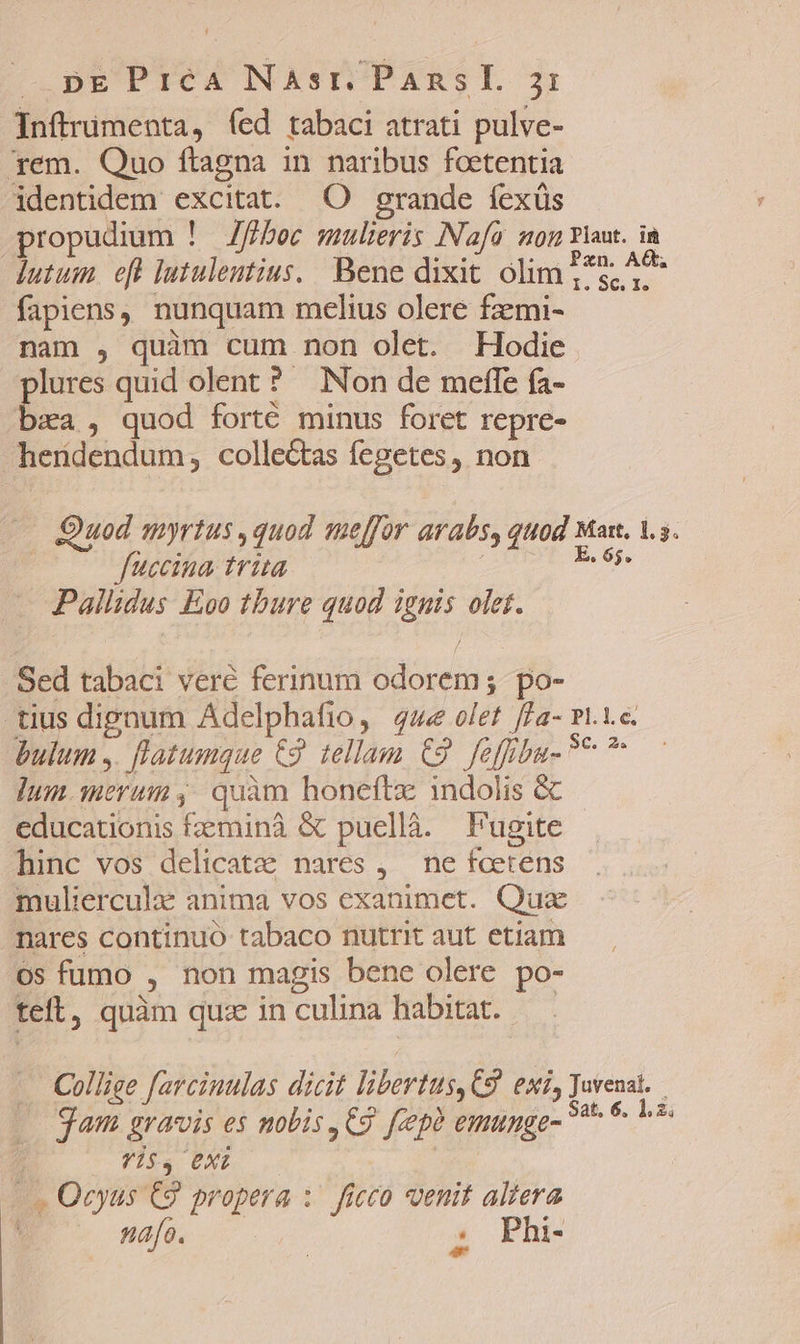 DE PICA NAST. PARS I. 31
Inſtrumenta, ſed tabaci atrati pulve-
rem. Quo ſtagna in naribus fœtentia
identidem excitat. O grande ſexûs
propudium ! Iſthoc mulieris Naſo non Plaut. in
lutum eſt lutulentius. Bene dixit olim Pæn. Act.
ſapiens, nunquam melius olere fæmi- 1. Sc. 1.
nam , quàm cum non olet. Hodie
plures quid olent ? Non de meſſe ſa-
bæa , quod fortè minus foret repre-
hendendum, collectas ſegetes, non
Quod myrtus , quod meſſor arabs, quod Mart. l. 3.
ſuccina trita E. 65.
Pallidus Eoo thure quod ignis olet.
Sed tabaci verè ferinum odorem ; po-
tius dignum Adelphaſio, quæ olet ſta- Pl. l. c.
bulum , ſtatumque & ſellam & ſeſſibu- Sc. 2.
lum merum , quàm honeſtæ indolis &
educationis fæminâ & puellâ. Fugite
hinc vos delicatæ nares , ne fœtens
mulierculæ anima vos exanimet. Quæ
nares continuò tabaco nutrit aut etiam
os fumo , non magis bene olere po-
teſt, quàm quæ in culina habitat.
Collige ſarcinulas dicit libertus, & exi, Juvenal.
Jam gravis es nobis , & ſæpè emunge- Sat. 6. l. 2.
ris, exi
Ocyus & propera : ſicco venit altera
naſo.
Phi-